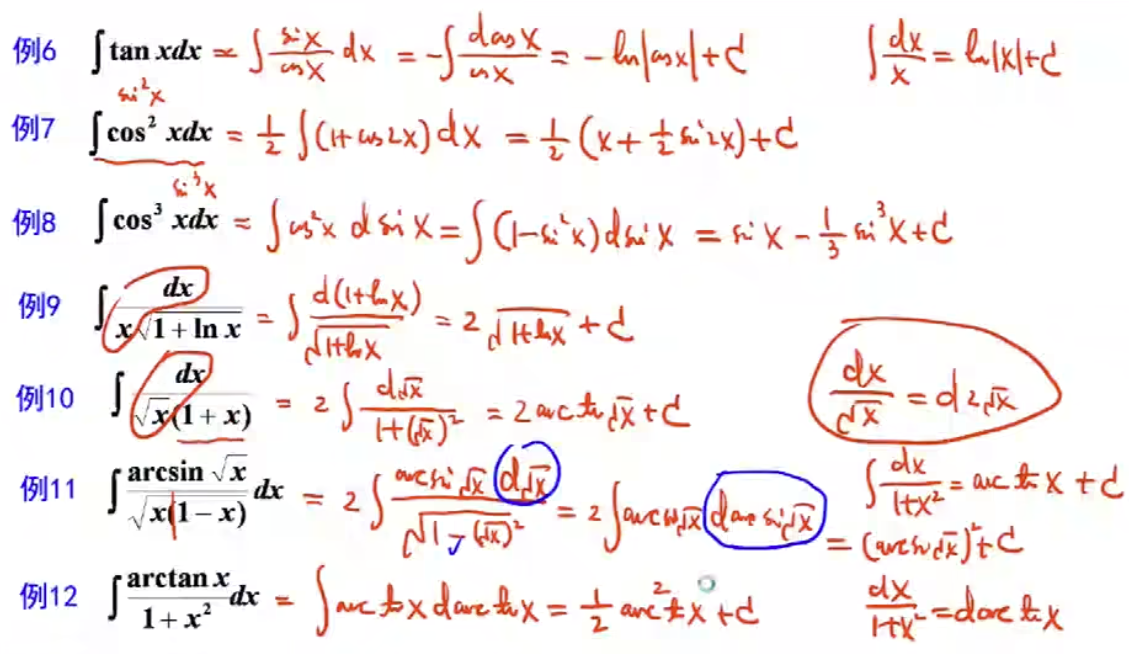 例6 ∫tan xdx = ∫ sin x / cos x dx = -∫ d cos x / cos x = -ln|cos x|+C ∫ dx/x = ln|x|+C
sin²x
例7 ∫cos² xdx = 1/2 ∫(1+cos2x)dx = 1/2 (x + 1/2 sin2x)+C
sin³x
例8 ∫cos³ xdx = ∫cos²x d sin x = ∫(1-sin²x)d sin x = sin x - 1/3 sin³x+C
例9 ∫ dx / x√(1 + ln x) = ∫ d(1+ln x) / √(1+ln x) = 2√(1+ln x) + C
例10 ∫ dx / √x(1 + x) = 2∫ d√x / 1+(√x)² = 2 arctan√x+C dx/√x = d2√x
例11 ∫ arcsin √x / √(x(1 − x)) dx = 2∫ arcsin√x d√x / √(1-(√x)²) = 2∫arcsin√x d arcsin√x = (arcsin√x)²+C ∫ dx / 1+x² = arctan x + C
例12 ∫ arctan x / 1 + x² dx = ∫arctan x d arctan x = 1/2 arctan² x + C dx / 1+x² = d arctan x